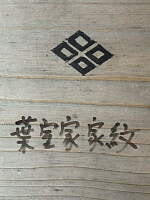 葉室家家紋